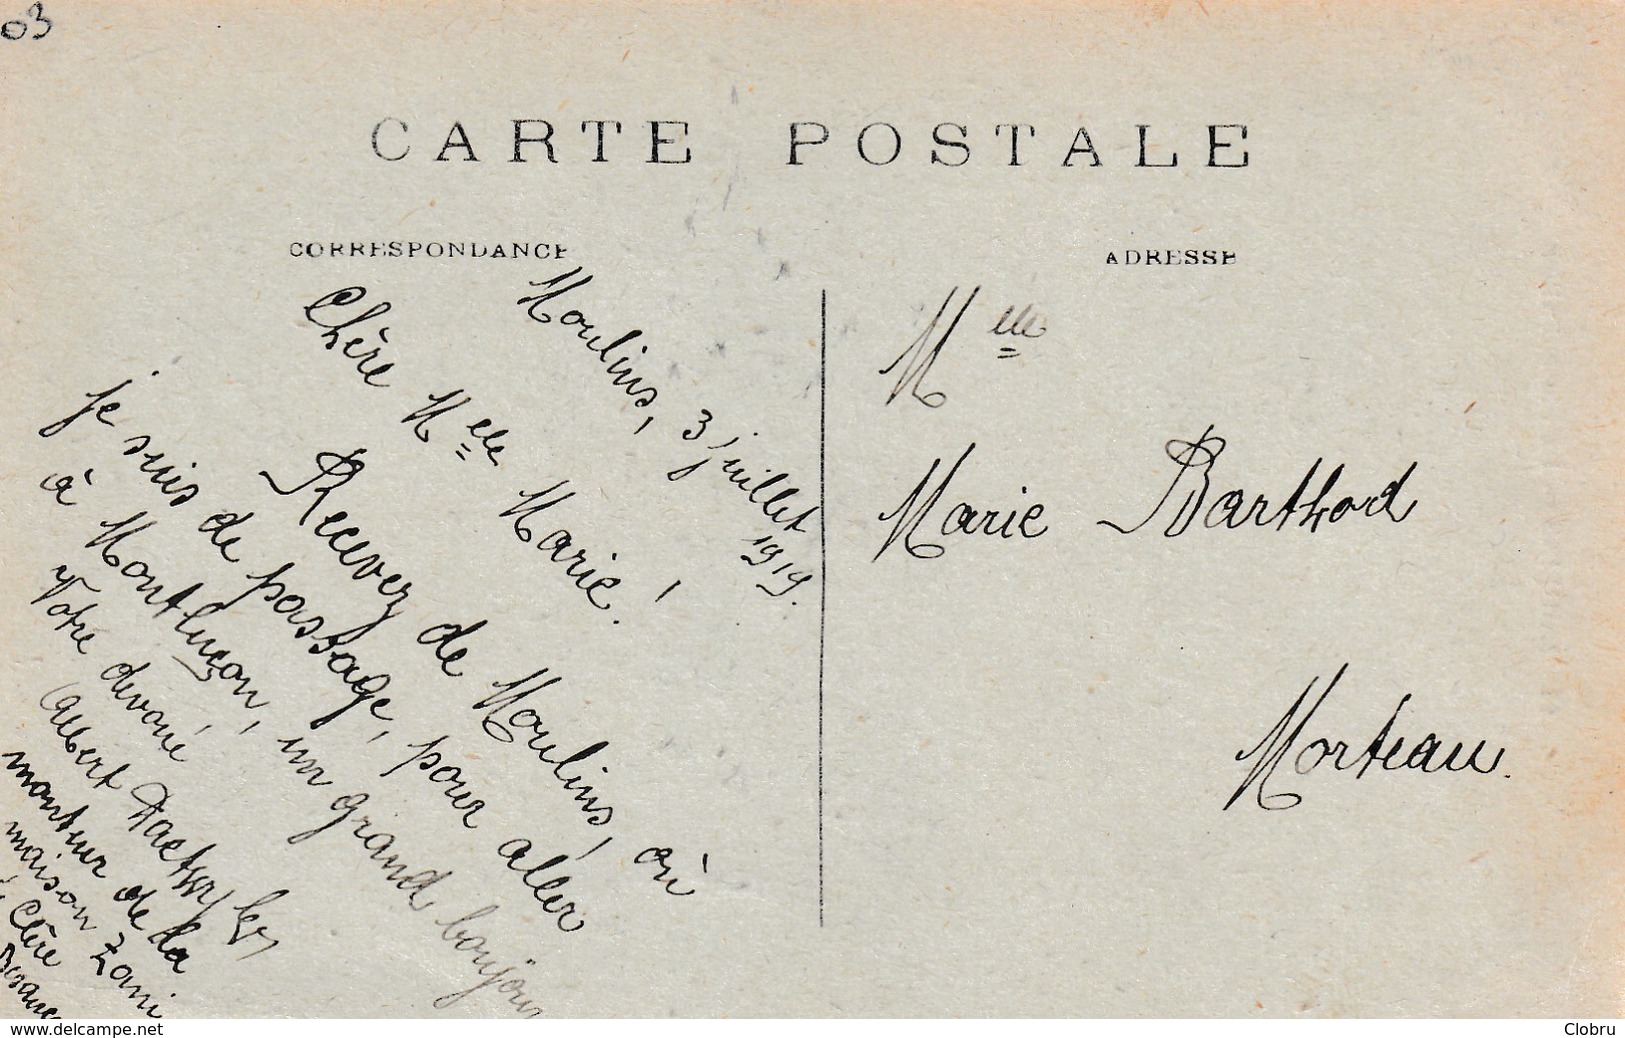 03
CARTE POSTALE
CORRESPONDANCE
ADRESSE
Moulins, 3 juillet
1919.
Chère Mlle Marie !
Recevez de Moulins, où
je suis de passage, pour aller
à Montluçon, un grand bonjour
Votre dévoué
Albert
monteur de la
maison
Clère
Mlle
Marie Barthod
Morteau.
www.delcampe.net
Clobru